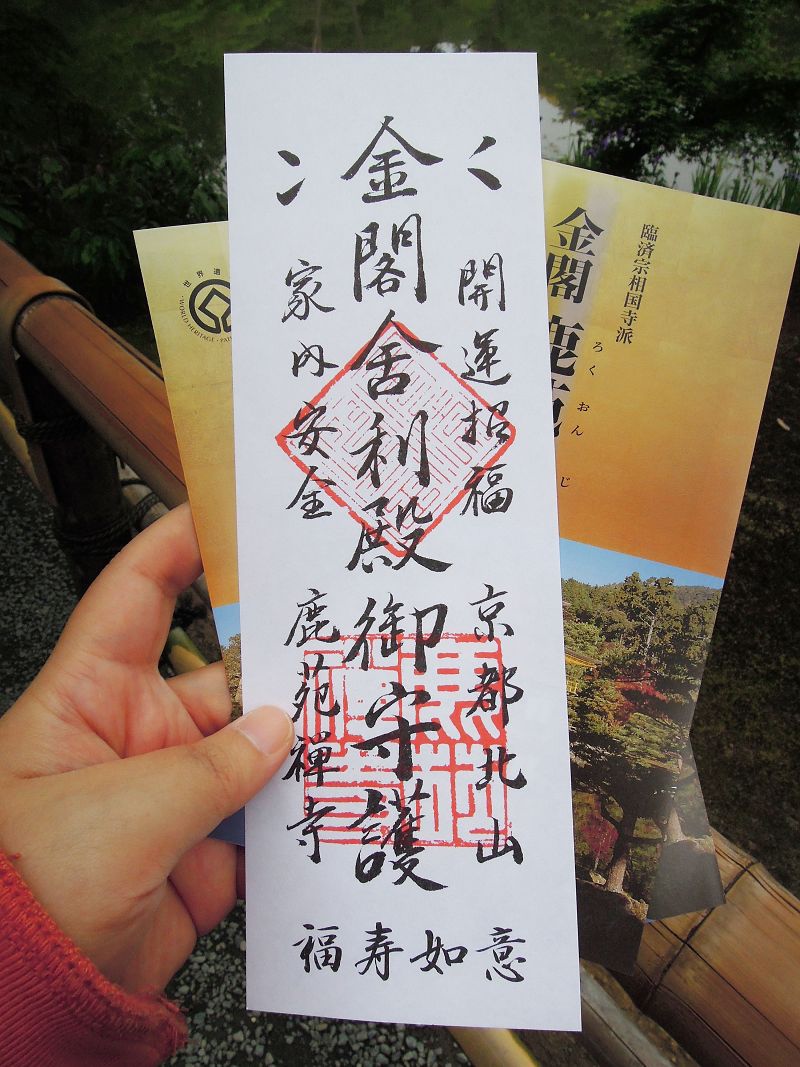 金閣舎利殿御守護
開運招福
家内安全
京都北山
鹿苑禅寺
福寿如意
臨済宗相国寺派
金閣 鹿苑
ろくおん
じ
世界遺
WORLD HERITAGE